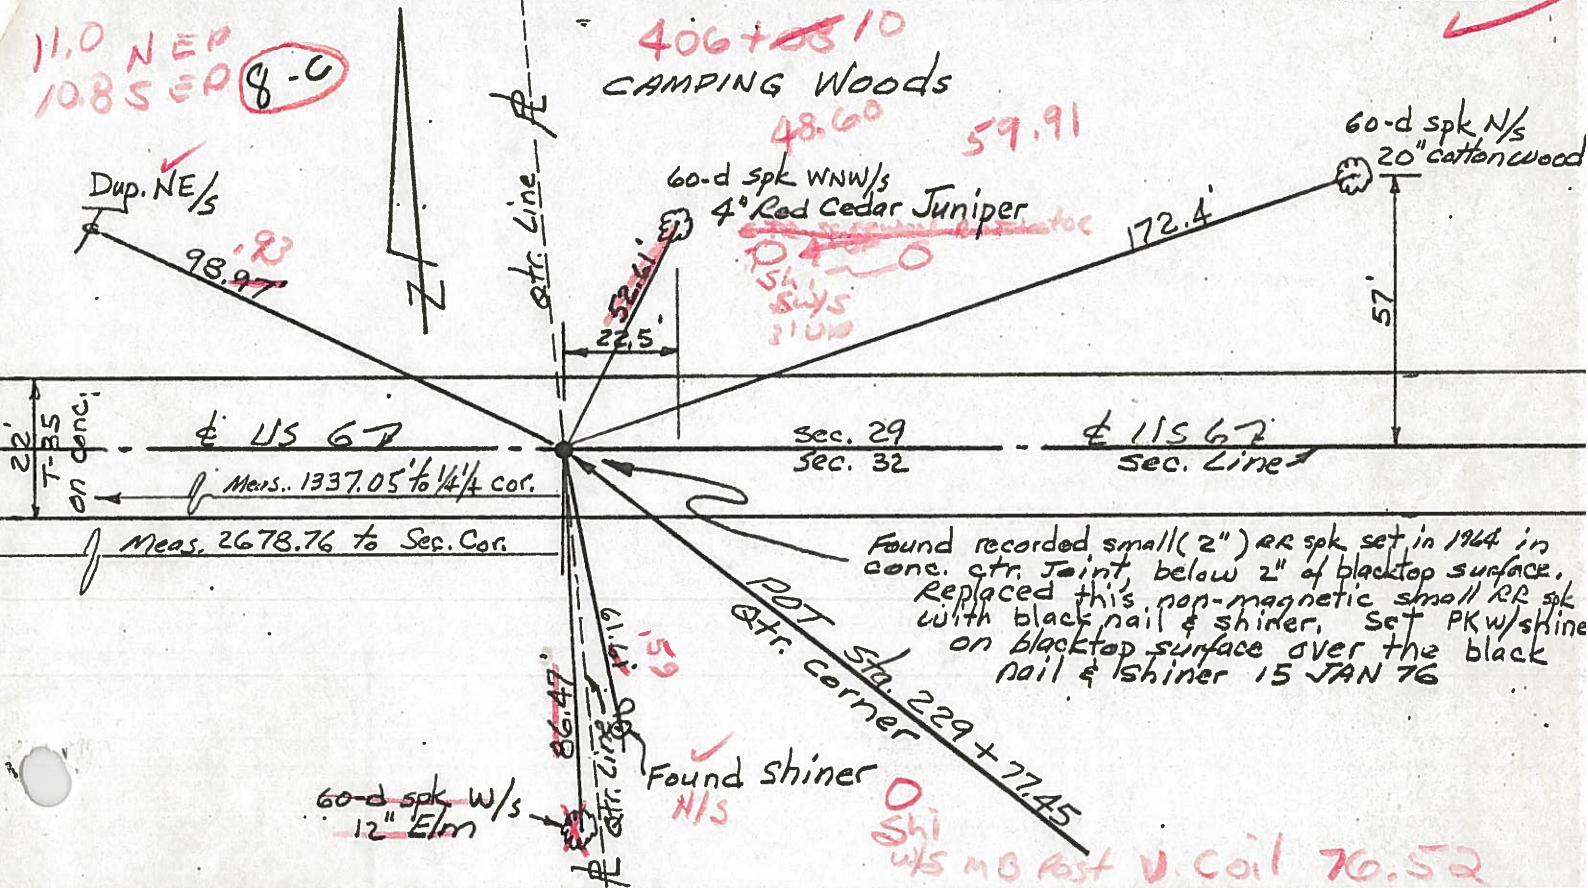 11.0 NEP
10.8 SEP
8-C
406+08 10
CAMPING Woods
48.60
59.91
60-d spk N/s
20" cottonwood
Dup. NE/s
60-d spk WNW/s
4" Red Cedar Juniper
Shi
SW/S
3'UP
98.97
.93
52.61'
22.5'
172.4'
57'
Qtr. Line
PL
Z
22'
T-35
on conc.
₵ US 67
sec. 29
Sec. 32
₵ US 67
Sec. Line
Meas. 1337.05' to ¼ ¼ cor.
Meas. 2678.76 to Sec. Cor.
Found recorded small (2") RR spk set in 1964 in
conc. ctr. Joint, below 2" of blacktop surface.
Replaced this non-magnetic small RR spk
with black nail & shiner. Set PK w/shine
on blacktop surface over the black
nail & shiner 15 JAN 76
POT Sta. 229+77.45
Qtr. corner
.59
86.47'
Qtr. Line
PL
Found Shiner
N/S
60-d spk W/s
12" Elm
Shi
W/S MB Post V. Coil 76.52